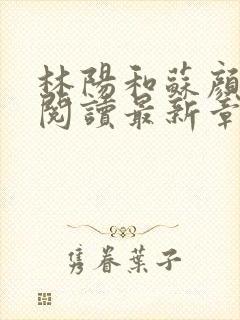 林陽和蘇顏
閱讀最新章
隽眷葉子